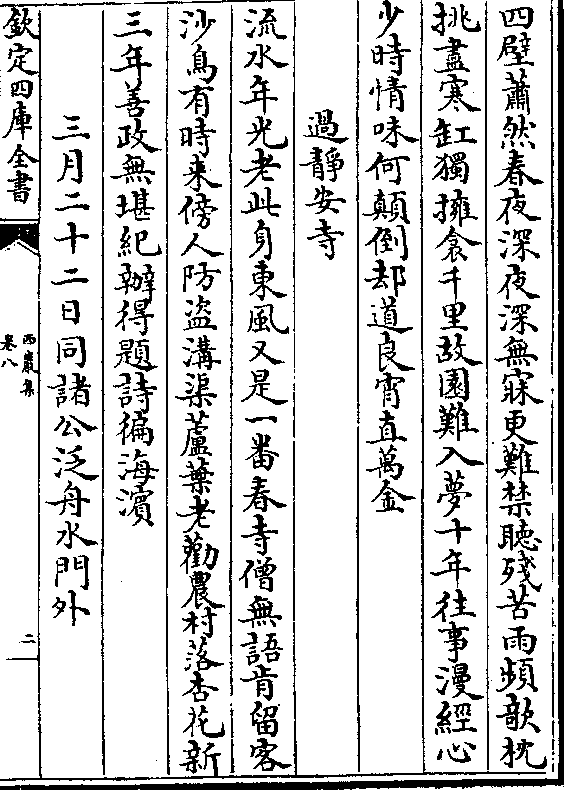 四壁蕭然春夜深夜深無寐更難禁聽殘苦雨頻欹枕
挑盡寒缸獨擁衾千里故園難入夢十年往事漫經心
少時情味何顛倒却道良宵直萬金
過靜安寺
流水年光老此身東風又是一番春寺僧無語肯留客
沙鳥有時来傍人防盜溝渠蘆葉老勸農村落杏花新
三年善政無堪紀辦得題詩徧海濱
三月二十二日同諸公泛舟水門外
欽定四庫全書
西巖集
卷八
二